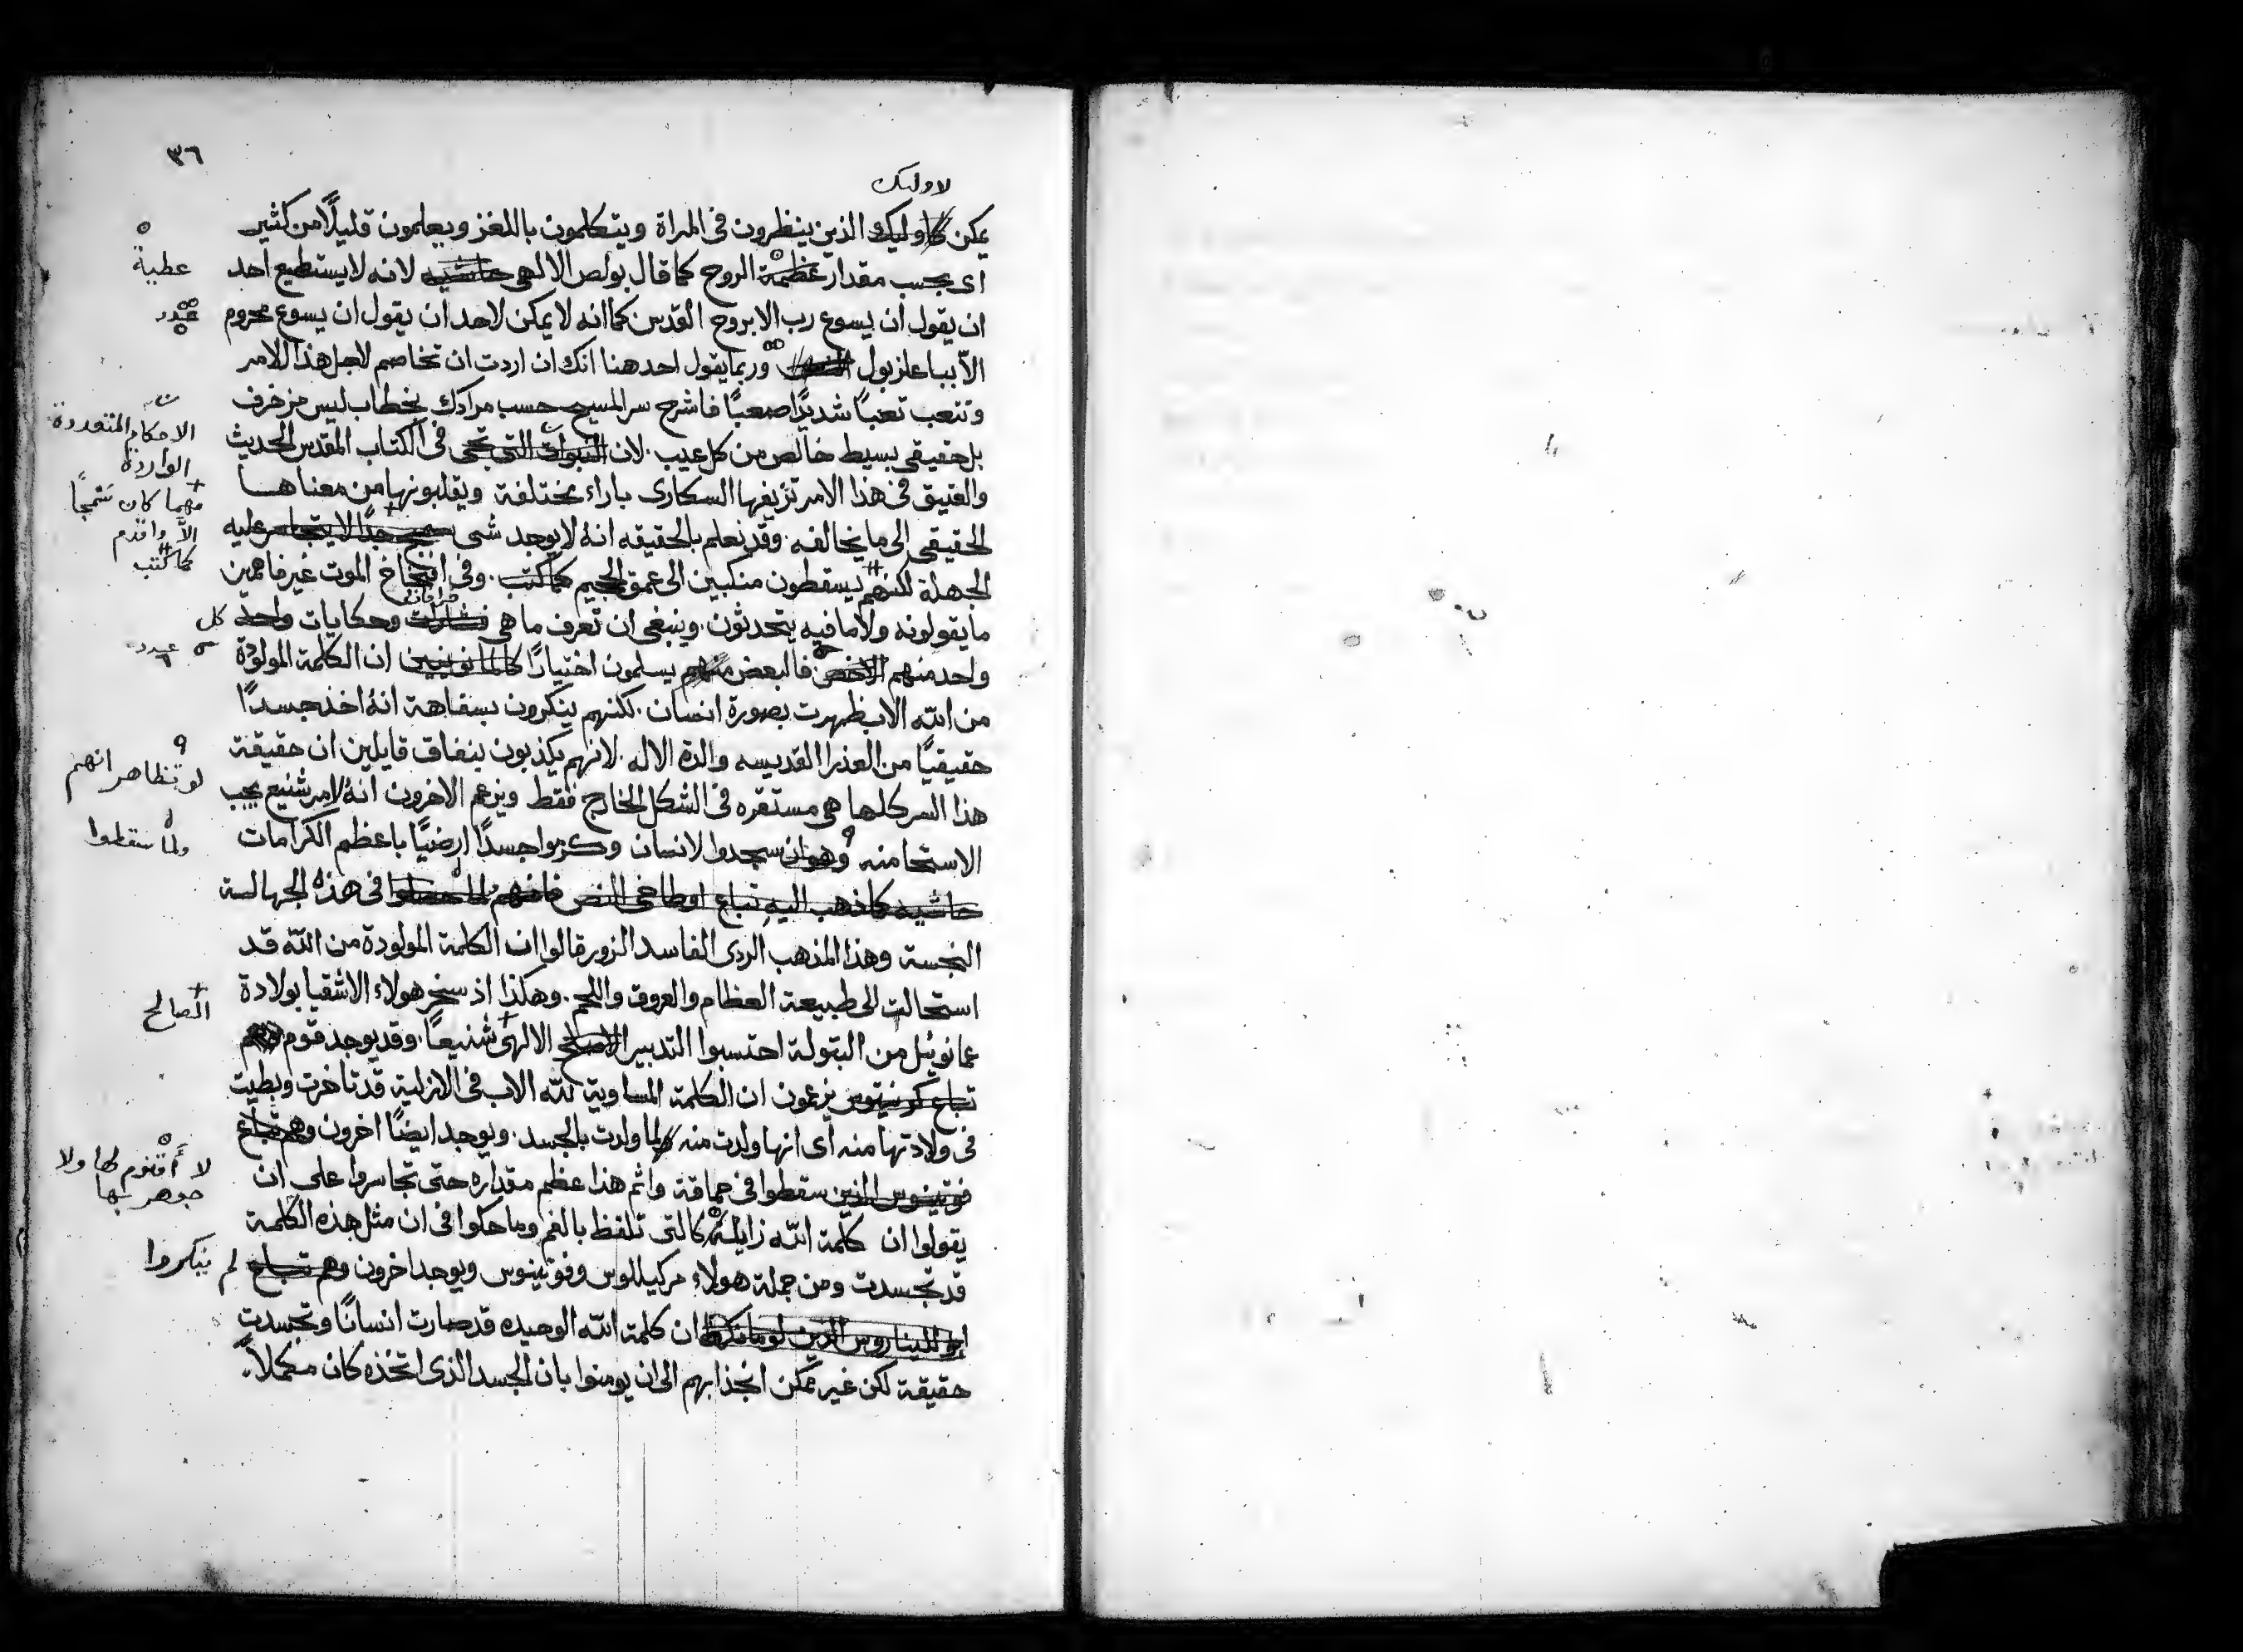 ٣٦
لاوليك
يمكن كاوليك الذين ينظرون فى المراة ويتكلمون باللغز ويعلمون قليلًا من كثير
اى بحسب مقدار عظمة الروح كما قال بولص الالهى حاشيه لانه لا يستطيع احد
عطية
ان يقول ان يسوع رب الا بروح القدس كما انه لا يمكن لاحد ان يقول ان يسوع محروم
الّا ببا علزبول وربما يقول احد هنا انك ان اردت ان تخاصم لاجل هذا الامر
وتتعب تعبًا شديدًا صعبًا فاشرح سر المسيح حسب مرادك بخطاب ليس مزخرف
بل حقيقى بسيط خالص من كل عيب . لان النبوات التى تجى فى الكتاب المقدس الحديث
الاحكام المتعددة
الواردة
والعتيق فى هذا الامر تزيفها السكارى باراء مختلفة ويقلبونها من معناها
الحقيقى الى ما يخالفه . وقد نعلم بالحقيقه انهُ لا يوجد شى سمج جدًا لا يتجاسر عليه
مهما كان سمجًا
الّا واقدم
الجهلة لكنهم يسقطون منكبين الى عمق الجحيم كما كتب . وفى افخاخ الموت غير فاهمين
كما كتب
ما يقولونه ولا ما فيه يتحدثون . وينبغى ان تعرف ما هى وحكايات واحد كل
خرافات
واحد منهم الاخص . فالبعض منهم يسلمون اختيارًا كالمانويين ان الكلمة المولودة
من اللّه الاب ظهرت بصورة انسان . لكنهم ينكرون بسفاهة انهُ اخذ جسدًا
حقيقيًّا من العذرا القديسه والدة الاله . لانهم يكذبون بنفاق قايلين ان حقيقة
هذا السر كلها هى مستقره فى الشكل الخارج فقط ويزعم الاخرون انهُ لامر شنيع يجب
لو تظاهر انهم
الاستحا منه وهو ان سجدوا لانسان وكرموا جسدًا ارضيًّا باعظم الكرامات
حاشيه كما ذهب اليه تباع اوطاخى النص فانهم لما حصلوا فى هذه الجهالة
ولما سقطوا
النجسة وهذا المذهب الردى الفاسد الزور قالوا ان الكلمة المولودة من اللّه قد
استحالت الى طبيعة العظام والعروق واللحم . وهكذا اذ سخر هولاء الاشقيا بولادة
عمانوئيل من البتولة احتسبوا التدبير الاصلح الالهى شنيعًا . وقد يوجد قوم وهم
الصالح
تباع كرنيتوس يزعمون ان الكلمة المساوية للّه الاب فى الازلية قد تاخرت وبطيت
فى ولادتها منه اى انها ولدت منه لما ولدت بالجسد . ويوجد ايضًا اخرون وهم تباع
فوتينوس الذين سقطوا فى حماقة واثم هذا عظم مقداره حتى تجاسروا على ان
لا أقنوم لها ولا
جوهر لها
يقولوا ان كلمة اللّه زايلة كالتى تلفظ بالفم وما حكوا فى ان مثل هذه الكلمة
قد تجسدت ومن جملة هولاء مركيللوس وفوتينوس ويوجد اخرون وهم تباع لم ينكروا
ابولليناروس الذين لو ما نكروا ان كلمة اللّه الوحيده قد صارت انسانًا وتجسدت
حقيقة لكن غير ممكن انجذابهم الى ان يومنوا بان الجسد الذى اتخذه كان مكملًا .